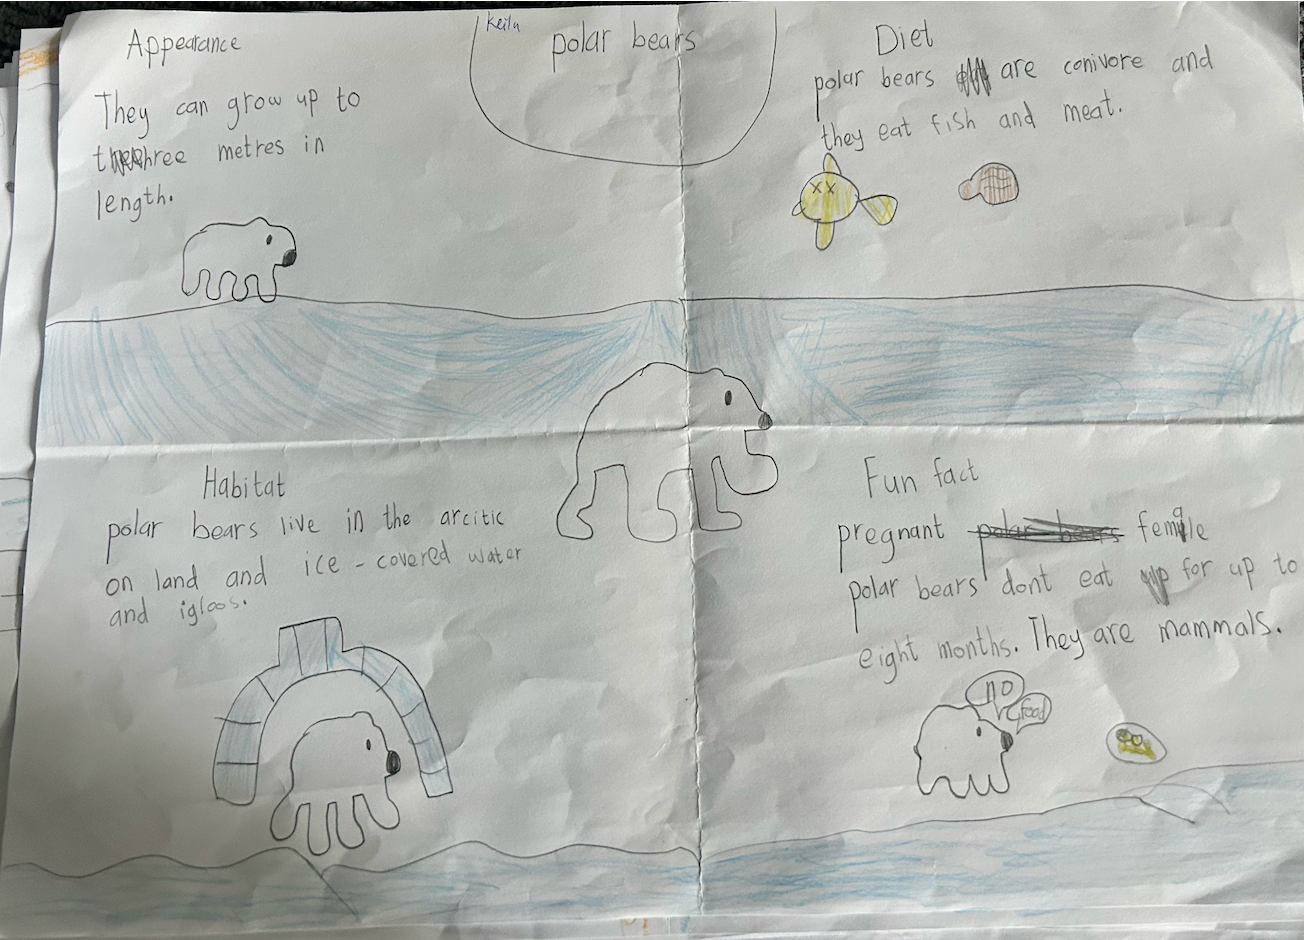 Keila
polar bears
Appearance
They can grow up to
three metres in
length.
Diet
polar bears are conivore and
they eat fish and meat.
Habitat
polar bears live in the arcitic
on land and ice - covered water
and igloos.
Fun fact
pregnant polar bears female
polar bears dont eat up for up to
eight months. They are mammals.
no
food